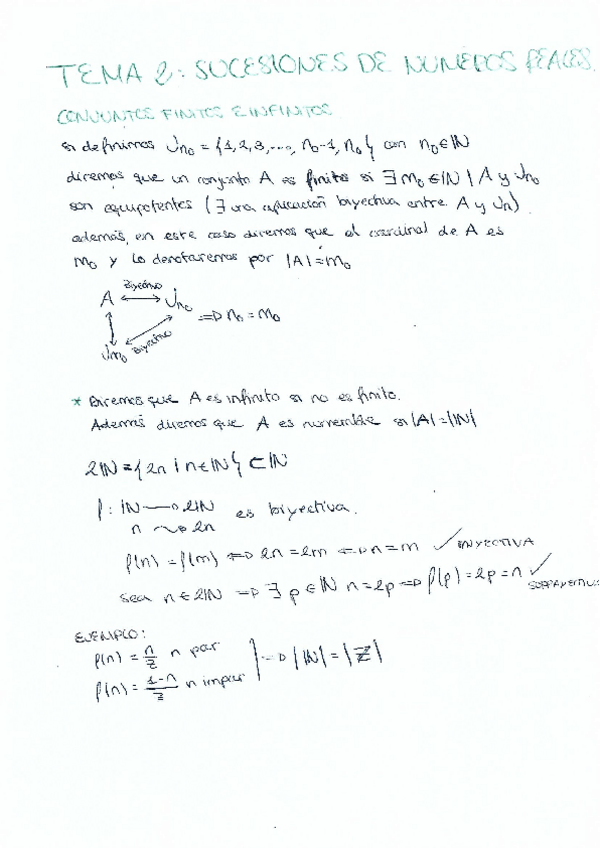 TEMA 2: SUCESIONES DE NUMEROS REALES.
CONJUNTOS FINITOS E INFINITOS
si definimos Jn₀ = {1,2,3,..., n₀-1, n₀} con n₀∈ℕ
diremos que un conjunto A es finito si ∃ m₀∈ℕ | A y Jm₀
son equipotentes (∃ una aplicación biyectiva entre A y Jn).
además, en este caso diremos que el cardinal de A es
m₀ y lo denotaremos por |A|=m₀
Biyectivo
A ↔ Jn₀ ⇒ n₀ = m₀
Jm₀ Biyectivo
* Diremos que A es infinito si no es finito.
Además diremos que A es numerable si |A|=|ℕ|
2ℕ = {2n | n∈ℕ} ⊂ ℕ
f: ℕ → 2ℕ es biyectiva.
n ⇝ 2n
f(n) = f(m) ⇔ 2n = 2m ⇔ n = m ✓ INYECTIVA
sea n∈2ℕ ⇒ ∃ p∈ℕ n=2p ⇒ f(p)=2p=n ✓
EJEMPLO:
f(n) = n/2 n par
f(n) = (1-n)/2 n impar } → |ℕ| = |ℤ|